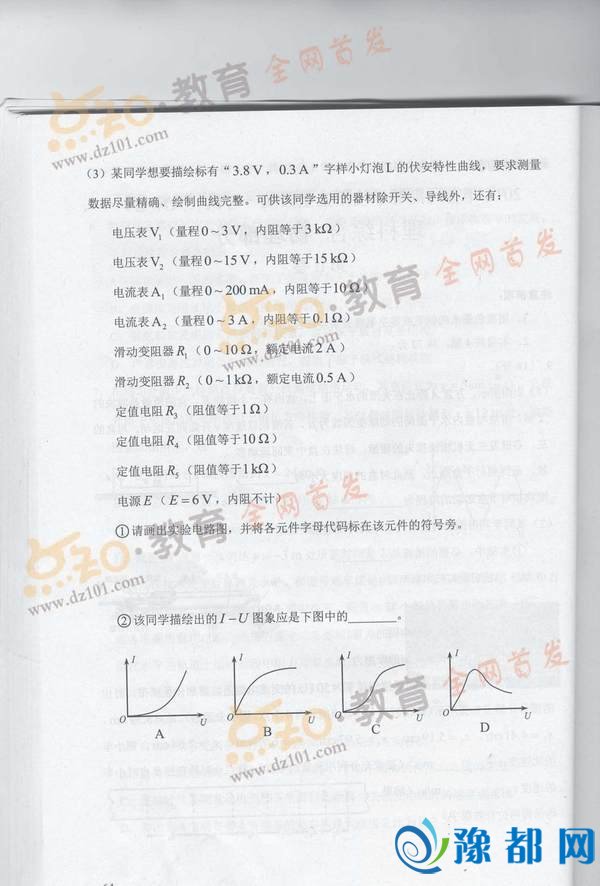 ·教育 全网首发
www.dz101.com
(3) 某同学想要描绘标有“3.8V，0.3A”字样小灯泡L的伏安特性曲线，要求测量
数据尽量精确、绘制曲线完整。可供该同学选用的器材除开关、导线外，还有：
电压表V₁（量程0~3V，内阻等于3kΩ）
电压表V₂（量程0~15V，内阻等于15kΩ）
电流表A₁（量程0~200mA，内阻等于10Ω）
电流表A₂（量程0~3A，内阻等于0.1Ω）
滑动变阻器R₁（0~10Ω，额定电流2A）
滑动变阻器R₂（0~1kΩ，额定电流0.5A）
定值电阻R₃（阻值等于1Ω）
定值电阻R₄（阻值等于10Ω）
定值电阻R₅（阻值等于1kΩ）
电源E（E=6V，内阻不计）
·教育 全网首发
www.dz101.com
①请画出实验电路图，并将各元件字母代码标在该元件的符号旁。
·教育 全网首发
www.dz101.com
②该同学描绘出的I-U图象应是下图中的______。
I I I I
O U O U O U O U
A B C D
·教育 全网首发
www.dz101.com
豫都网